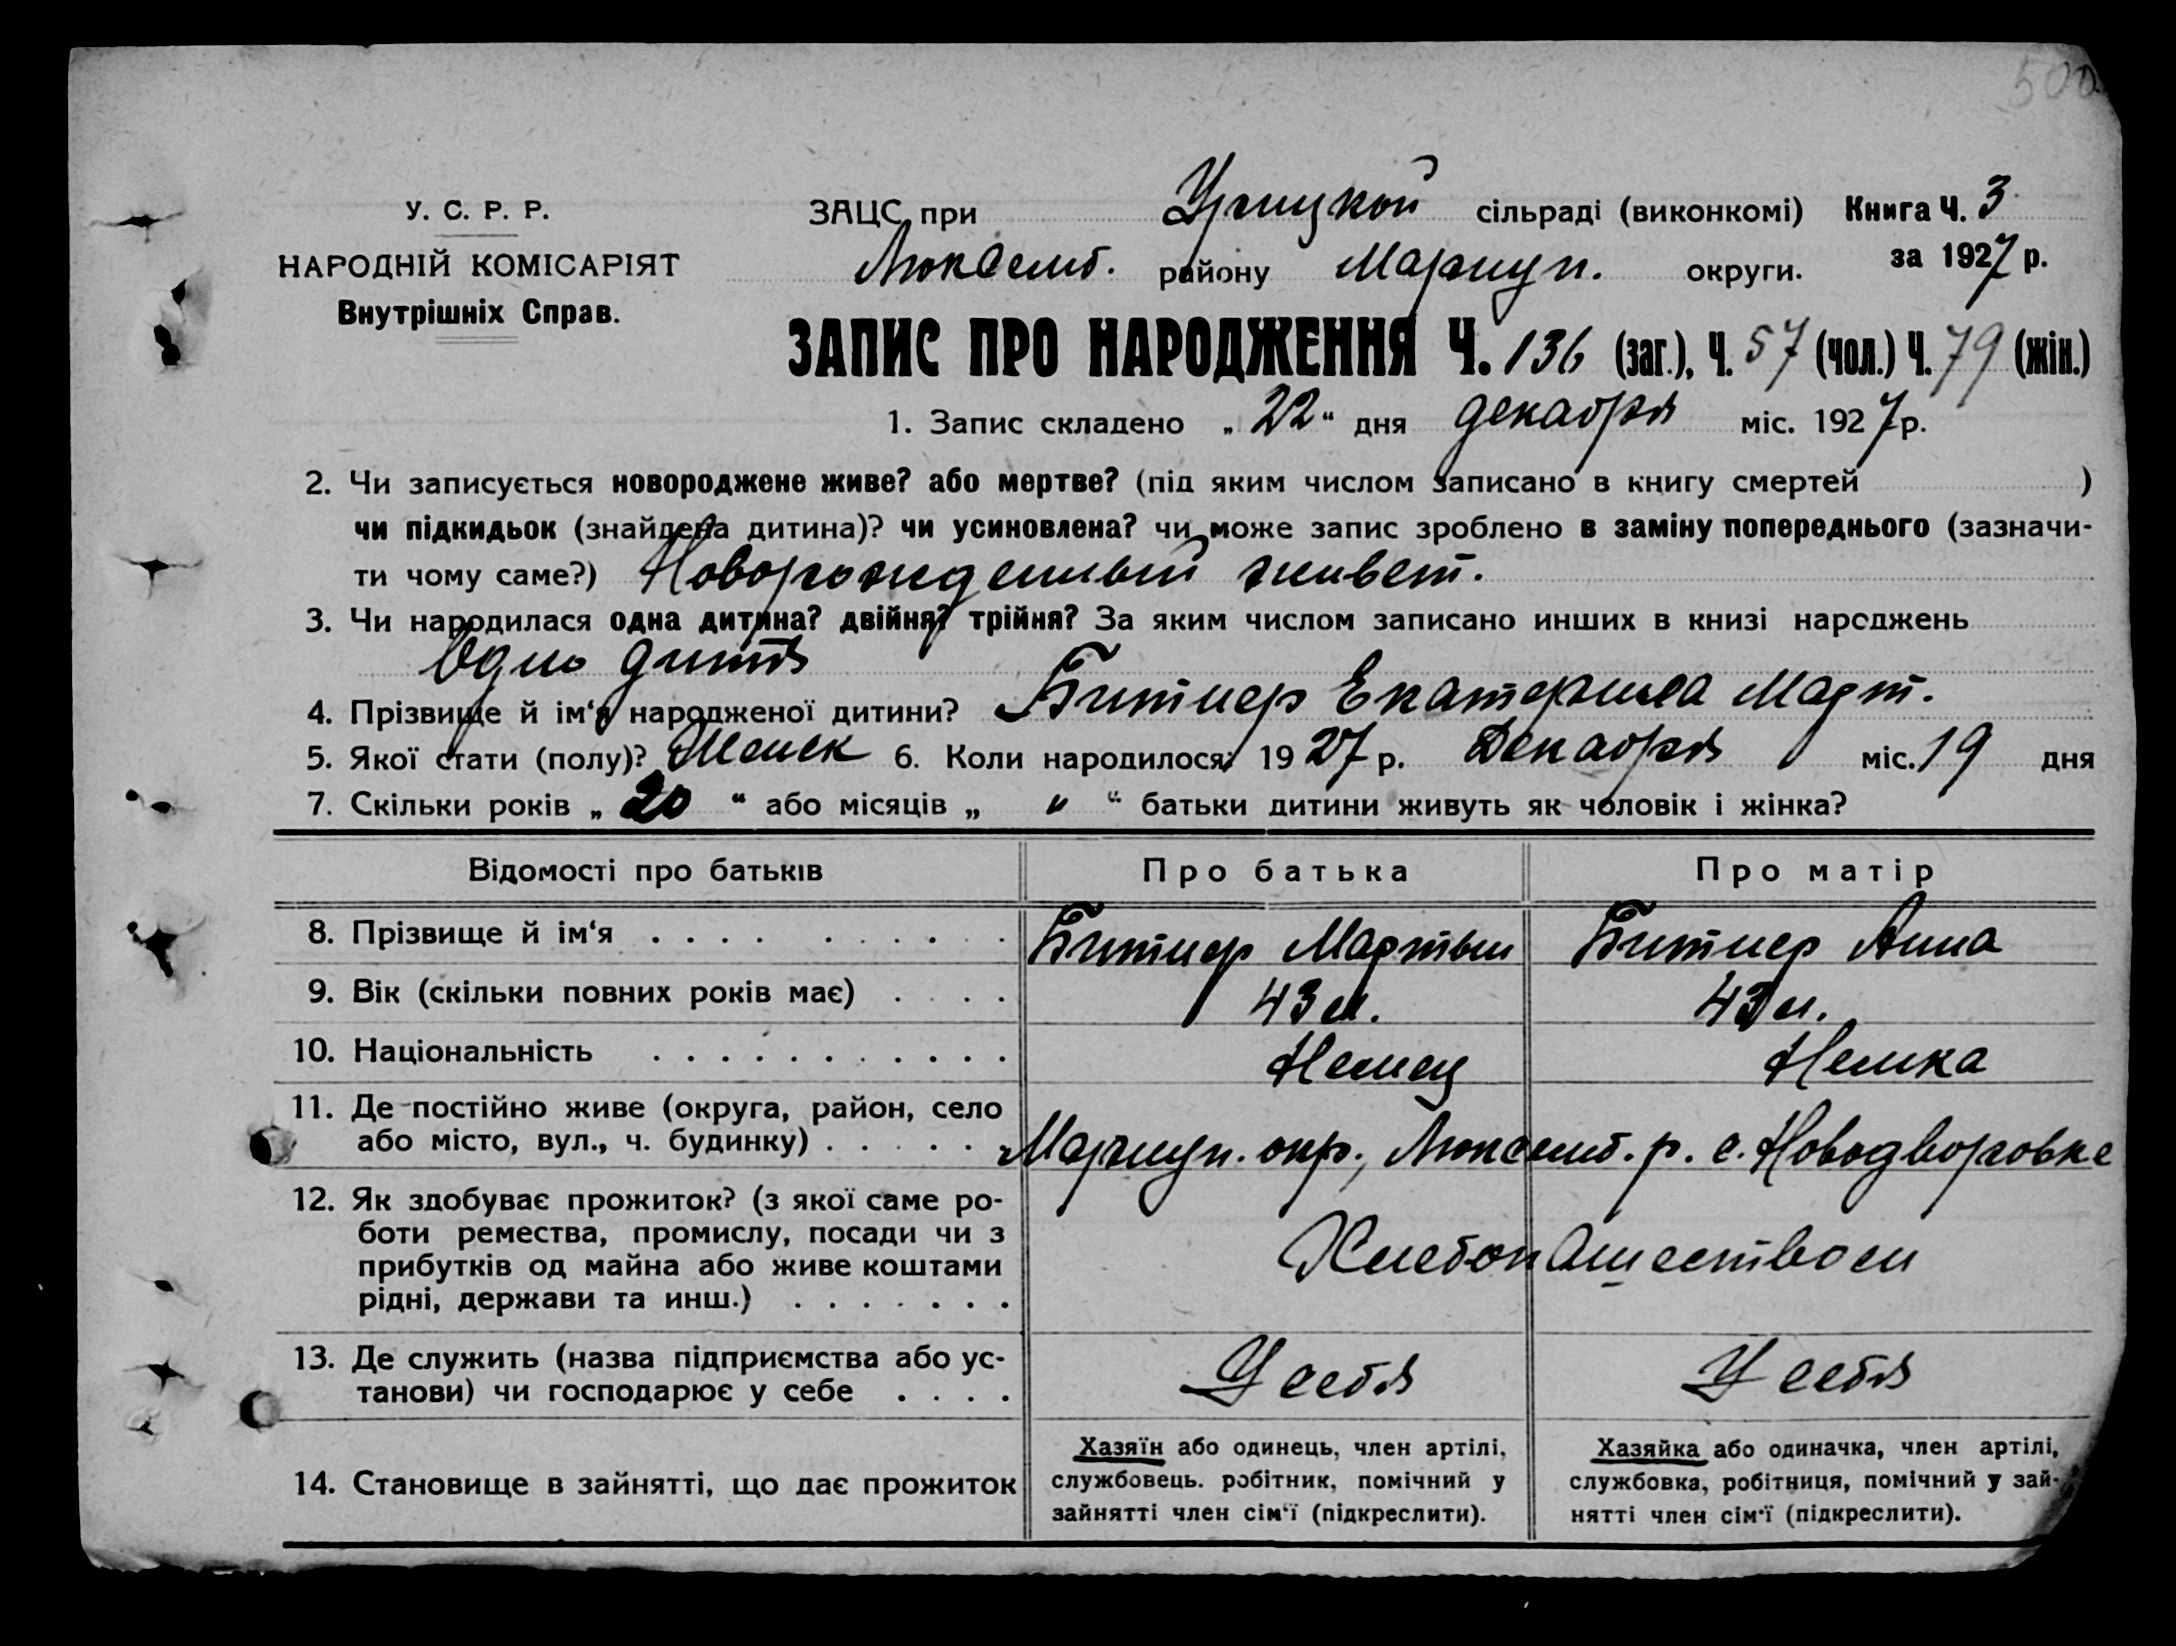 500
У. С. Р. Р.
НАРОДНІЙ КОМІСАРІЯТ
Внутрішніх Справ.
ЗАЦС при Урицкой сільраді (виконкомі) Книга Ч. 3
Люксемб. району Мариуп. округи. за 1927 р.
ЗАПИС ПРО НАРОДЖЕННЯ Ч. 136 (заг.), Ч. 57 (чол.) Ч. 79 (жін.)
1. Запис складено „ 22 “ дня декабря міс. 1927 р.
2. Чи записується новороджене живе? або мертве? (під яким числом записано в книгу смертей )
чи підкидьок (знайдена дитина)? чи усиновлена? чи може запис зроблено в заміну попереднього (зазначи-
ти чому саме?) Новорожденный живет.
3. Чи народилася одна дитина? двійня? трійня? За яким числом записано инших в книзі народжень
Одно дитя
4. Прізвище й ім‘я народженої дитини? Битнер Екатерина Март.
5. Якої стати (полу)? Женск 6. Коли народилося: 1927 р. Декабря міс. 19 дня
7. Скільки років „ 20 “ або місяців „ " “ батьки дитини живуть як чоловік і жінка?
Відомості про батьків Про батька Про матір
8. Прізвище й ім‘я . . . . . . . . . . Битнер Мартын Битнер Анна
9. Вік (скільки повних років має) . . . . 43 л. 43 л.
10. Національність . . . . . . . . . . . Немец Немка
11. Де постійно живе (округа, район, село
або місто, вул., ч. будинку) . . . . . . Мариуп. окр., Люксемб. р. с. Новодворовке
12. Як здобуває прожиток? (з якої саме ро-
боти ремества, промислу, посади чи з
прибутків од майна або живе коштами Хлебопашеством
рідні, держави та инш.) . . . . . . .
13. Де служить (назва підприємства або ус-
танови) чи господарює у себе . . . . У себя У себя
14. Становище в зайнятті, що дає прожиток
Хазяїн або одинець, член артілі,
службовець. робітник, помічний у
зайнятті член сім‘ї (підкреслити).
Хазяйка або одиначка, член артілі,
службовка, робітниця, помічний у зай-
нятті член сім‘ї (підкреслити).